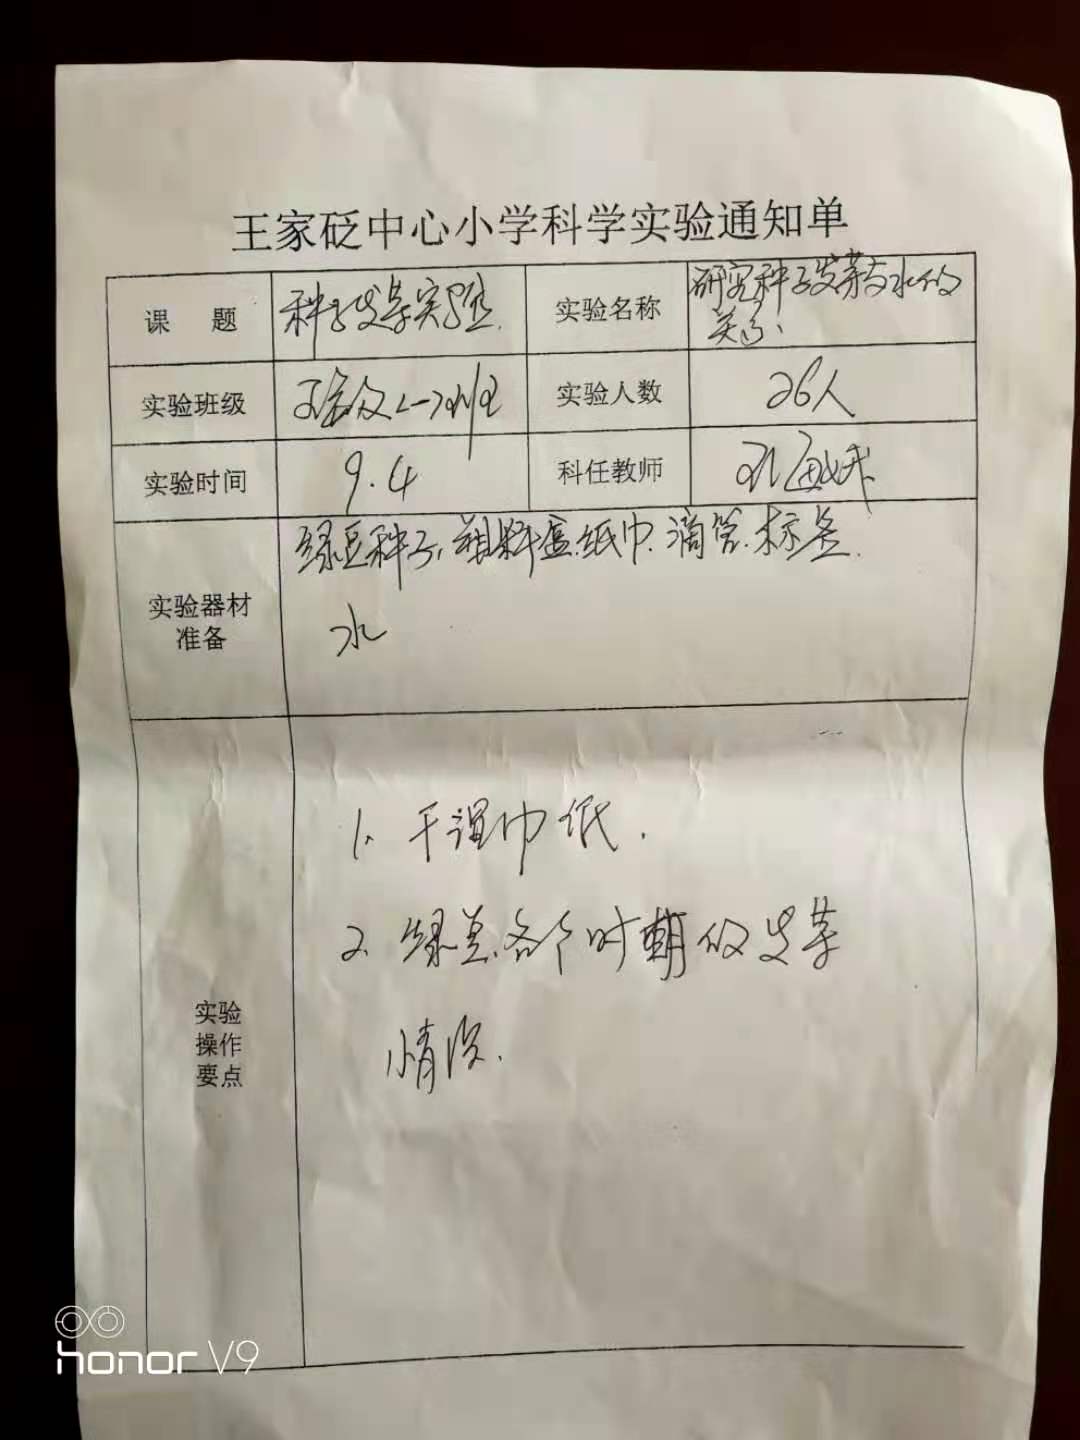 王家砭中心小学科学实验通知单
课 题 种子发芽实验 实验名称 研究种子发芽与水的
关系
实验班级 五年级(一)班 实验人数 26人
实验时间 9.4 科任教师
绿豆种子、塑料盒、纸巾、滴管、标签
实验器材
准备 水
1、干湿巾纸.
2、绿豆各个时期的发芽
情况.
实验
操作
要点
honor V9